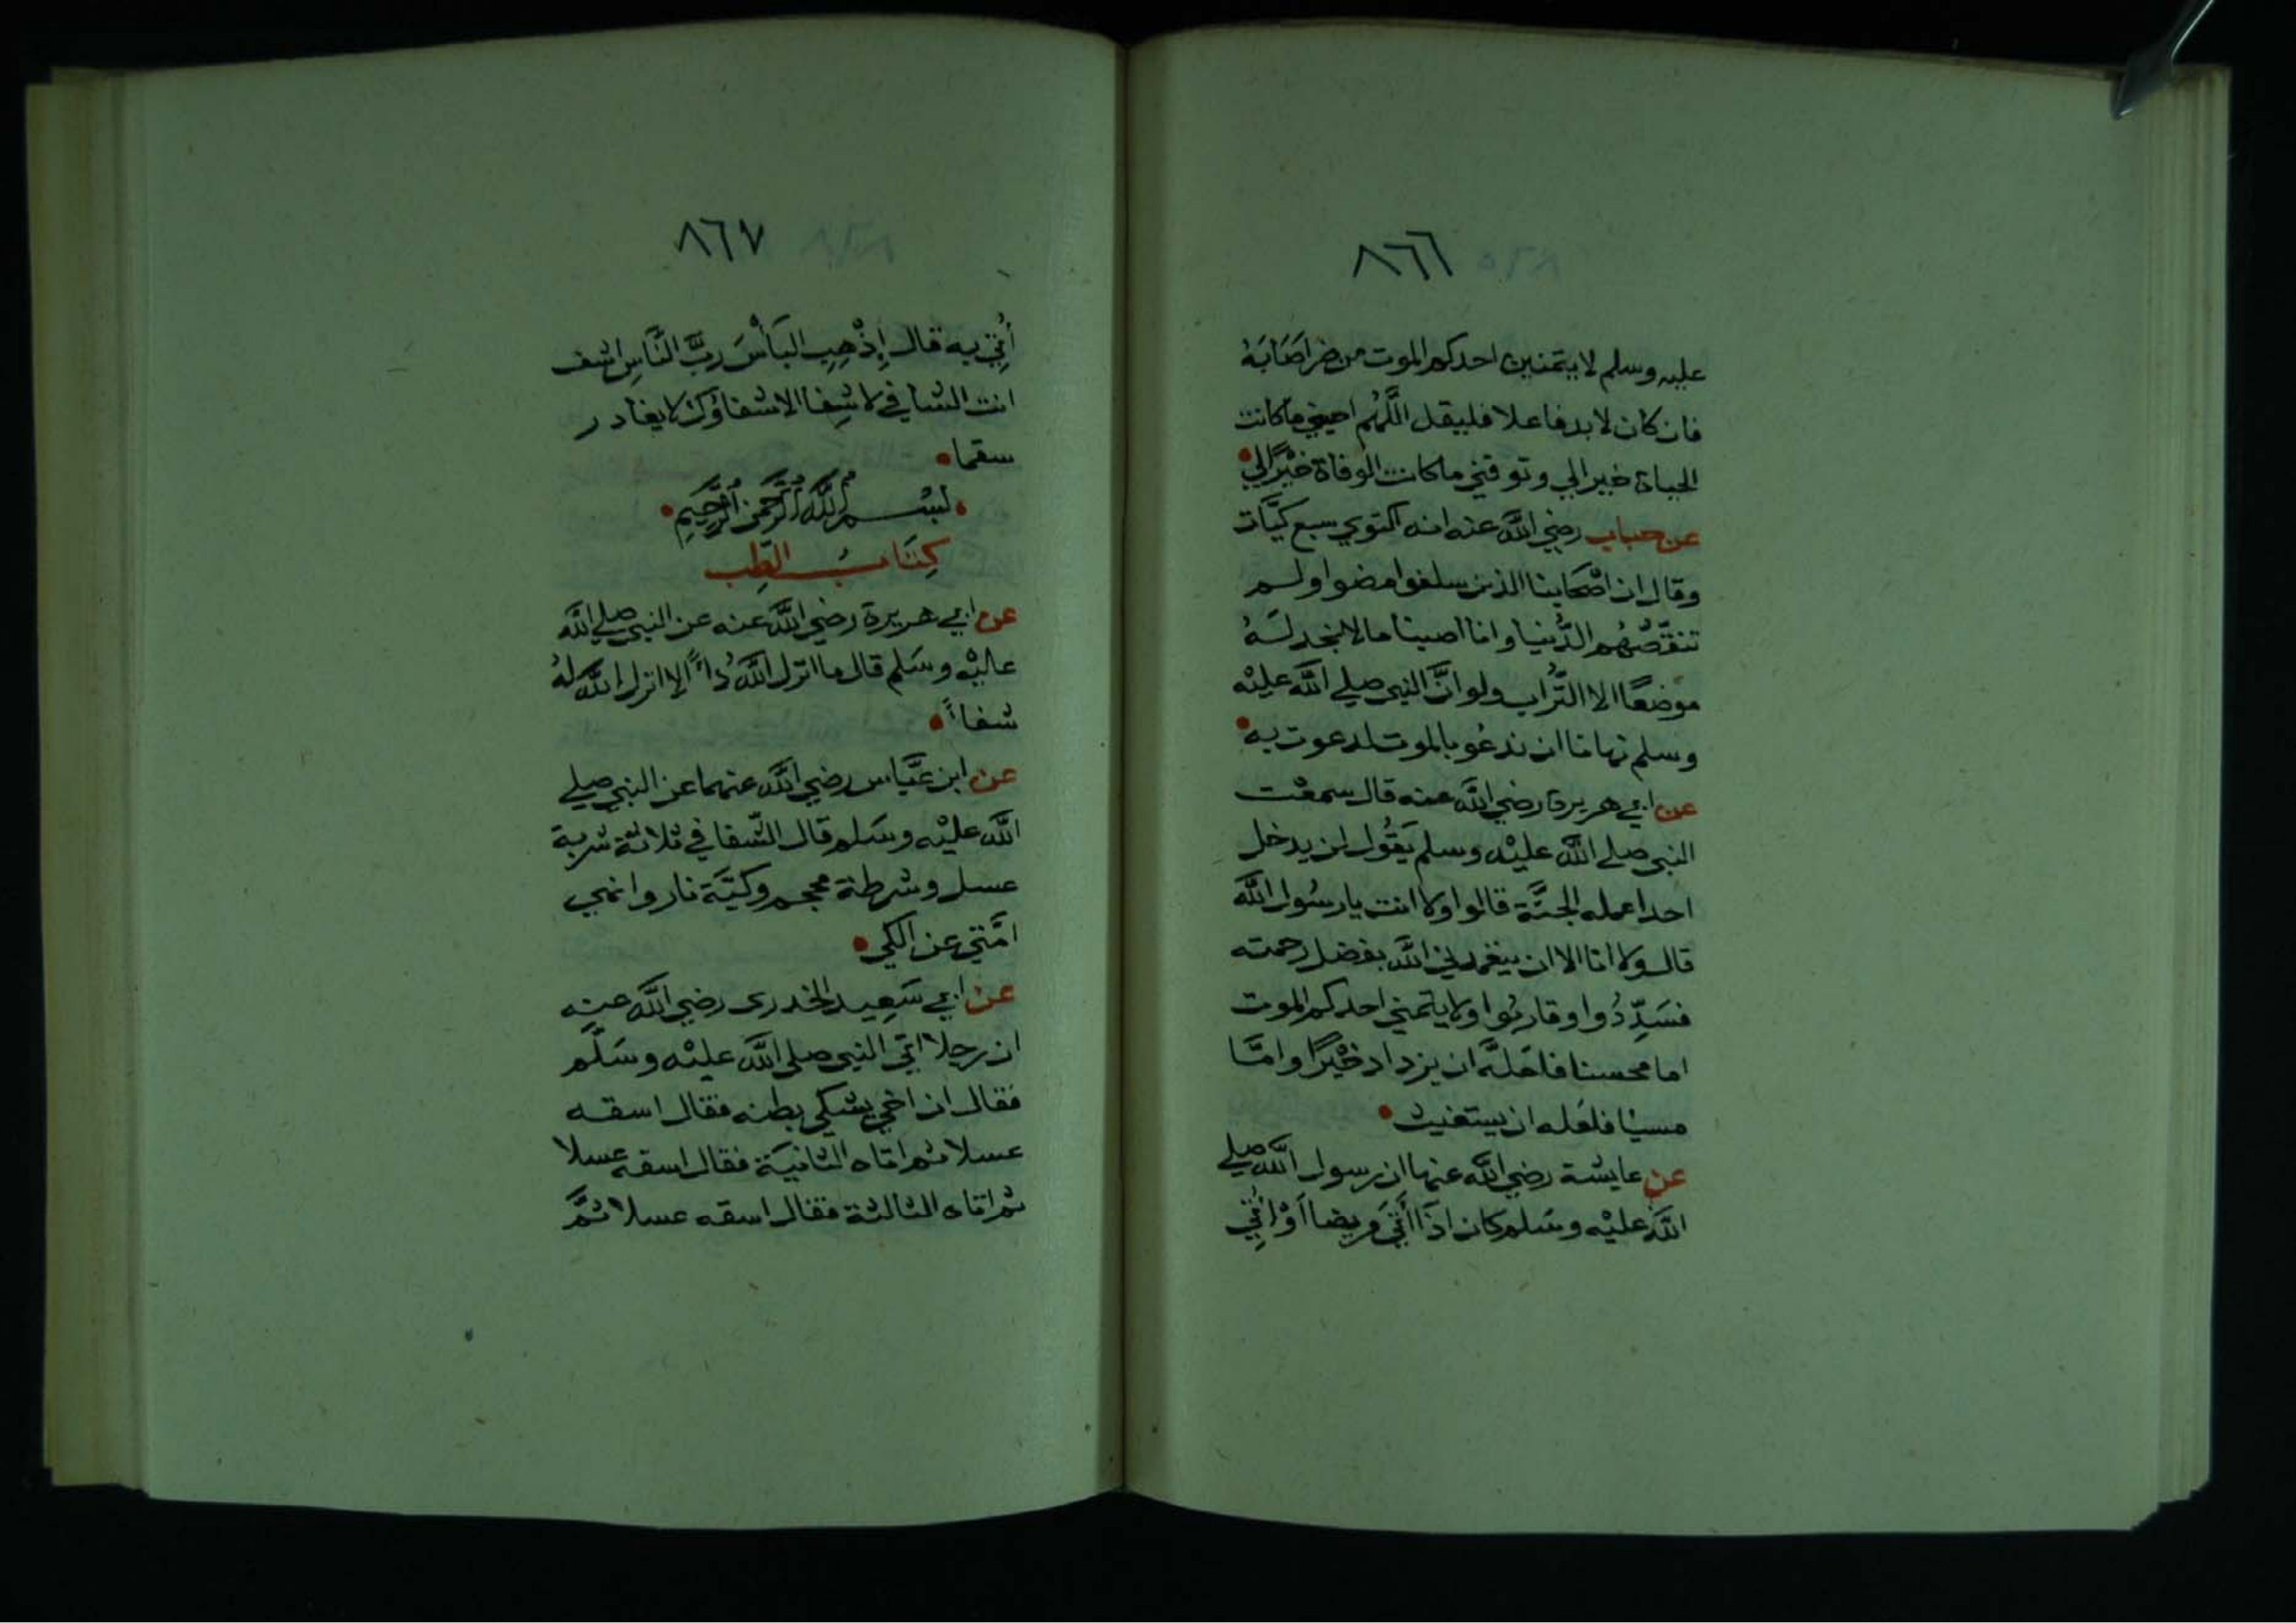 ٨٦٦
عليه وسلم لا يتمنين احدكم الموت من ضر اصَابَهُ
فان كان لا بد فاعلا فليقل اللَّهُم احيني ما كانت
الحياة خيرا لي وتوفني ما كانت الوفاة خَيْرًا لي
عن خباب رضي اللَّه عنه انه اكتوي سبع كيَّات
وقال ان اصْحابنا الذين سلفوا مضوا ولم
تنقّصْهُم الدُّنيا وانا اصبنا ما لا نجد لَهُ
موْضعًا الا التُّراب ولو انَّ النبي صلي اللَّه عليْه
وسلم نهانا ان ندعُو بالموت لدعوت به
عن ابي هريرة رضي اللَّه عنه قال سمعْت
النبي صلي اللَّه عليْه وسلم يَقُول لن يدخل
احدا عمله الجنَّة قالوا ولا انت يا رسُول اللَّه
قال ولا انا الا ان يتغمدني اللَّه بفضل رحمته
فسَدِّدُوا وقاربُوا ولا يتمني احدكم الموت
اما محسنا فلعَلَّه ان يزداد خَيْرًا وامَّا
مسيا فلعَله ان يستغيث
عن عايشة رضي اللَّه عنها ان رسول اللَّه صلي
اللَّه عليْه وسَلم كان اذَا أتَي مريضا أوْ اُتِي
٨٦٧
اُتِي به قال إِذْهِبِ البَأْسَ ربَّ النَّاسِ اشف
انت الشافي لا شِفا الا شفاؤك لا يغادر
سقما
بسْم اللَّه الرَّحمن الرَّحِيمِ
كِتَابُ الطِب
عن ابي هريرة رضي اللَّه عنه عن النبي صلي اللَّه
عليْه وسَلم قال ما انزل اللَّهُ دَاءً الا انزل اللَّه لهُ
شفاءً
عن ابن عبَّاس رضي اللَّه عنهما عن النبي صلي
اللَّه عليْه وسَلم قال الشّفا في ثلاثة شربة
عسل وشرطة محجم وكيَّة نار وانهي
امَّتي عن الكي
عن ابي سَعِيد الخدرى رضي اللَّه عنه
ان رجلا اتي النبي صلي اللَّه عليْه وسَلَّم
فقال ان اخي يشكي بطنه فقال اسقه
عسلا ثم اتاه الثانيَة فقال اسقه عسلا
ثم اتاه الثالثة فقال اسقه عسلا ثمَّ